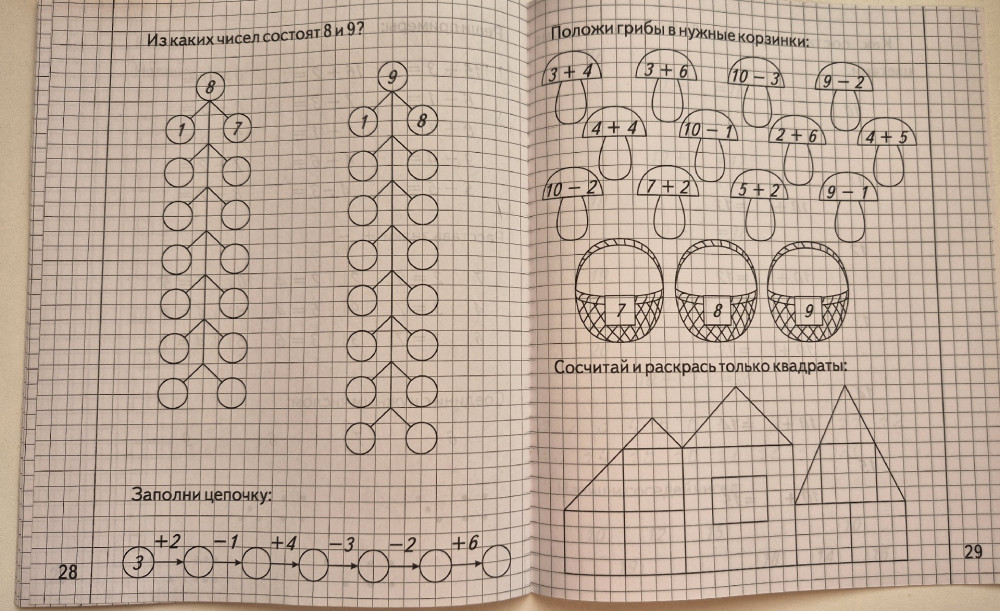 Из каких чисел состоят 8 и 9?
8
1 7
9
1 8
Заполни цепочку:
+2 −1 +4 −3 −2 +6
3
28
Положи грибы в нужные корзинки:
3 + 4 3 + 6 10 − 3 9 − 2
4 + 4 10 − 1 2 + 6 4 + 5
10 − 2 7 + 2 5 + 2 9 − 1
7 8 9
Сосчитай и раскрась только квадраты:
29